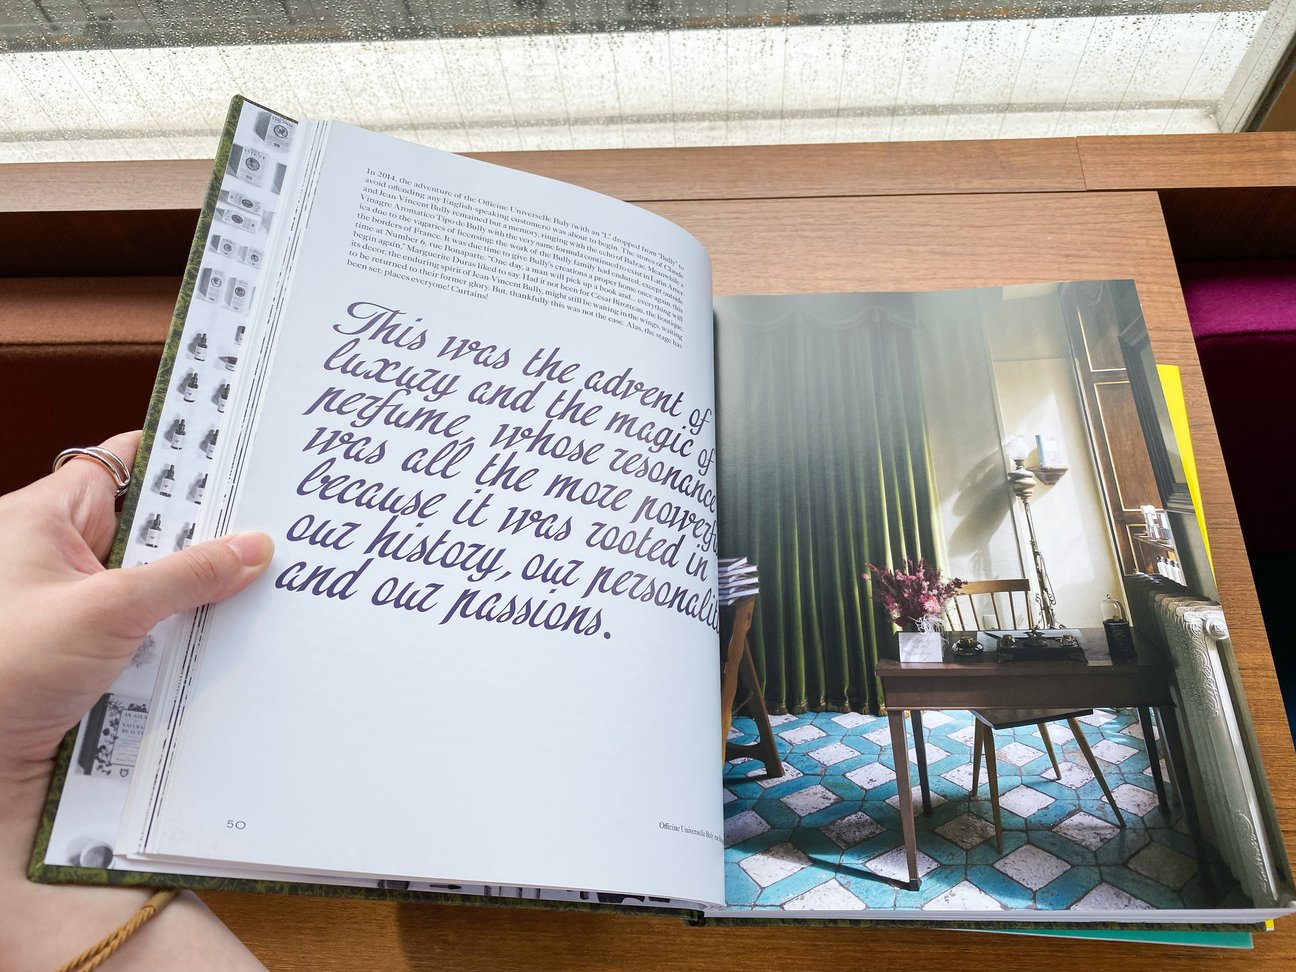 In 2014, the adventure of the Officine Universelle Buly (with an "L" dropped from "Bully" to
avoid offending any English-speaking customers) was about to begin. The stores of Claude
and Jean-Vincent Bully remained but a memory, ringing with the echo of Balzac. Meanwhile a
Vinagre Aromatico Tipo de Bully with the very same formula continued to exist in Latin Amer
ica due to the vagaries of licensing; the work of the Bully family had endured, except outside
the borders of France. It was due time to give Bully's creations a proper home once again, this
time at Number 6, rue Bonaparte. "One day, a man will pick up a book and... everything will
begin again," Marguerite Duras liked to say. Had it not been for César Birotteau, the boutique,
its decor, the enduring spirit of Jean-Vincent Bully, might still be waiting in the wings, waiting
to be returned to their former glory. But, thankfully this was not the case. Alas, the stage has
been set; places everyone! Curtains!
This was the advent of
luxury and the magic of
perfume, whose resonance
was all the more powerf
because it was rooted in
our history, our personali
and our passions.
50
Officine Universelle Buly, rue